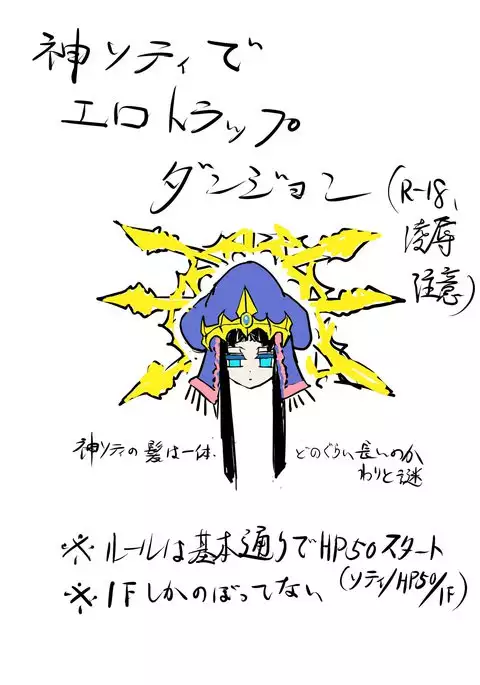 神ソティで
エロトラップ
ダンジョン
(R-18、
凌辱
注意)
神ソティの髪は一体、
どのぐらい長いのか
わりと謎
※ルールは基本通りでHP50スタート
※1Fしかのぼってない
(ソティ/HP50/1F)